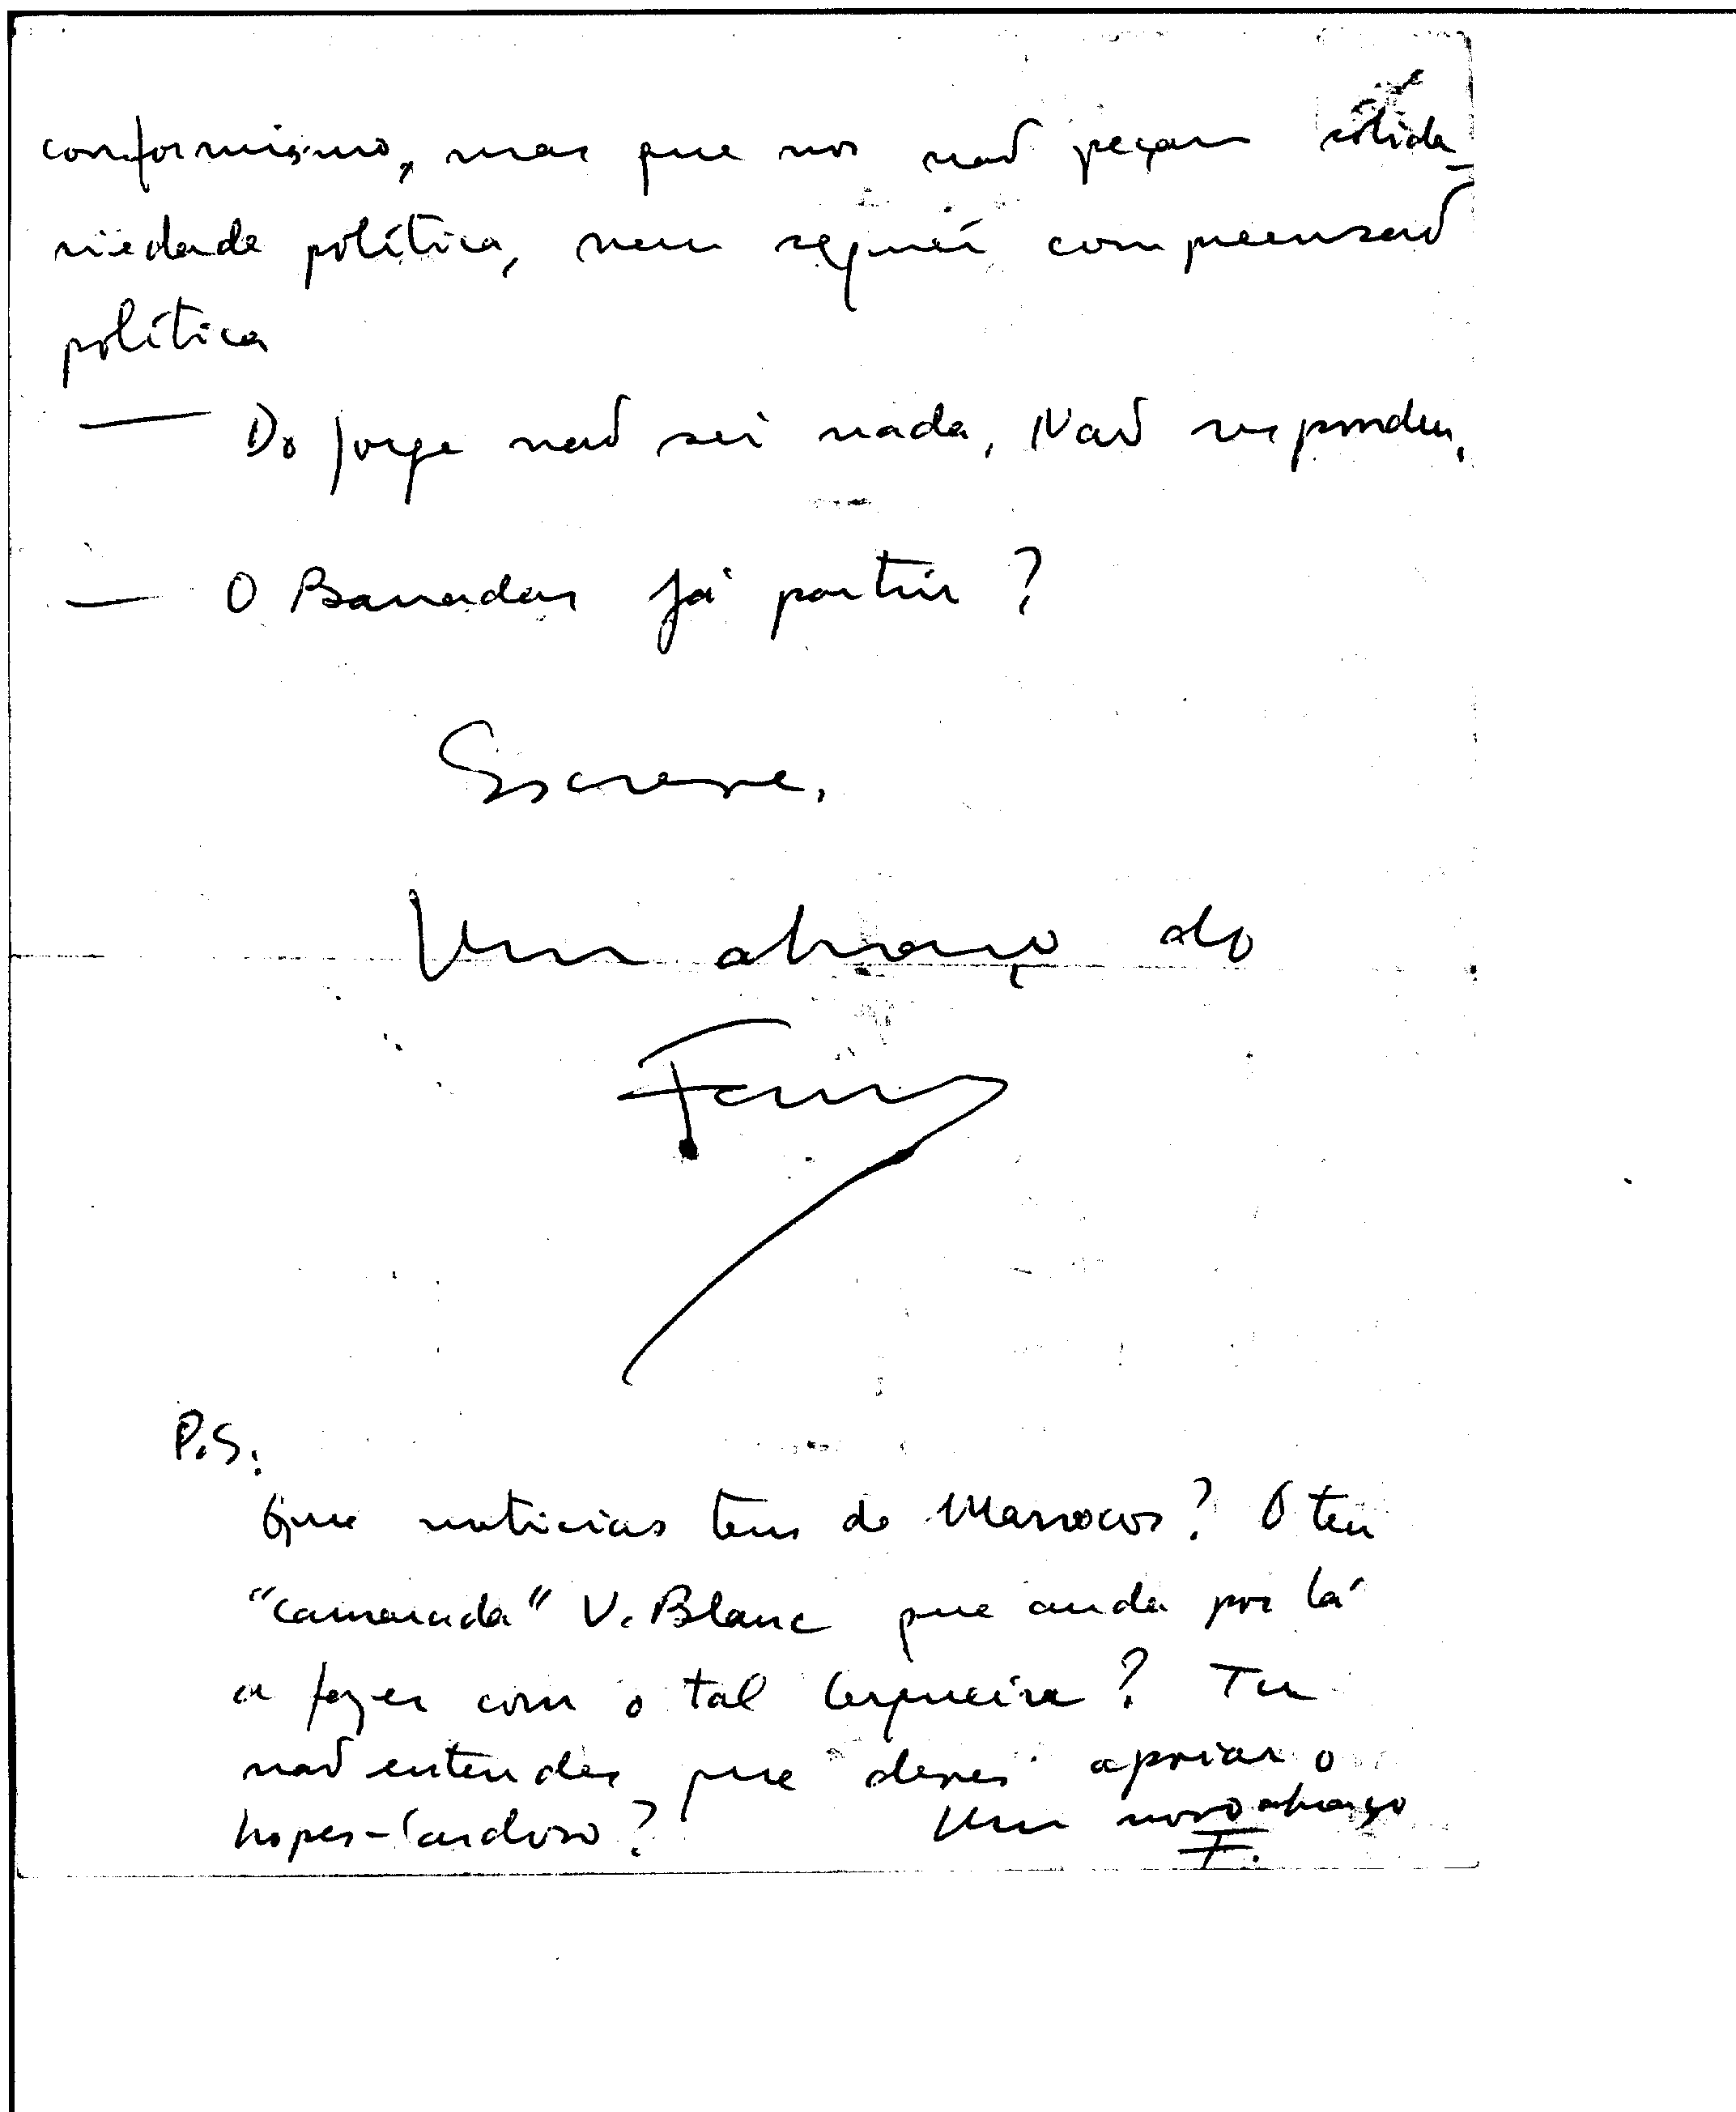 conformismo, mas que nos não peçam solida-
riedade política, nem sequer compreensão
política
— Do Jorge não sei nada. Não respondeu.
— O Barradas já partiu?
Escreve.
Um abraço do
P.S.
Que noticias tens de Marrocos? O teu
"camarada" V. Blanc que anda por lá
a fazer com o tal Cerqueira? Tu
não entendes que deves apoiar o
Lopes-Cardoso? Um novo abraço
F.